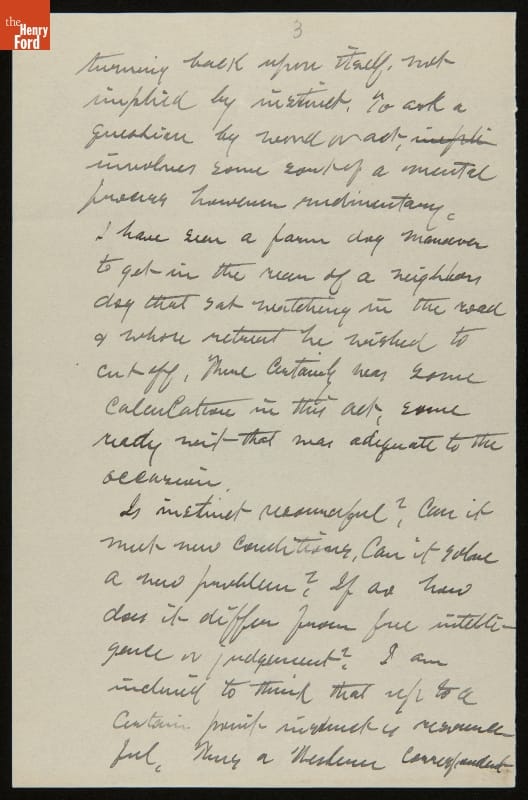 the
Henry
Ford
3
turning back upon itself, not
implied by instinct. To ask a
question by word or act, impli
involves some sort of a mental
process however rudimentary.
I have seen a farm dog maneuver
to get in the rear of a neighbors
dog that sat watching in the road
& whose retreat he wished to
cut off. There certainly was some
calculation in this act, some
ready wit that was adequate to the
occasion.
Is instinct resourceful? Can it
meet new conditions, Can it solve
a new problem? If so how
does it differ from free intelli-
gence or judgement? I am
inclined to think that up to a
certain point instinct is resource-
ful. Thus a Western correspondent